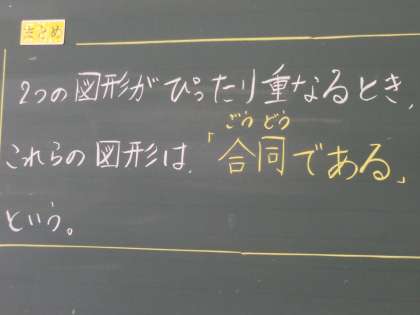 まとめ
2つの図形がぴったり重なるとき、
ごうどう
これらの図形は、「合同である」
という。